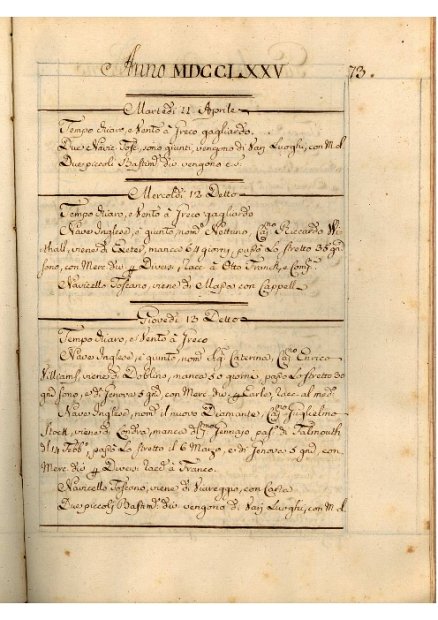 Anno MDCCLXXV 73.
Martedi 11 Aprile
Tempo chiaro, e Vento à Greco gagliardo.
Due Navic. Tosc. sono giunti, vengono di Varj Luoghi, con M. d.
Due piccoli Bastim. div. vengono e.s.
Mercoldi 12 Detto
Tempo chiaro, e Vento à Greco gagliardo
Nave Inglese, è giunto, nom. Nettuno, Cap. Riccardo
viene di Exeter manca 64 giorni, passò Lo stretto 35 gni
sono, con Merc. div. p. Diversi, racc. à Otto Franck, e Comp.
Navicello Toscano, viene di Massa con Cappell.
Giovedi 13 Detto
Tempo chiaro, e Vento à Greco
Nave Inglese, è giunto, nom. Caterina, Cap. Enrico
Williams, viene di Dublino, manca 50 giorni, passò Lo stretto 20
gni sono, e di Genova 5 gni, con Merc. div. p. Earle, racc. al mod.
Nave Inglese, nom. il nuovo Diamante, Cap. Guglielmo
Stock, viene di Londra, manca dal Gennajo pass. di Falmouth
il 14 Febb., passò Lo stretto il 6 Marzo, e di Genova 5 gni, con
Merc. div. p. Diversi racc. à Franco.
Navicello Toscano, viene di Viareggio, con Carta
Due piccoli Bastim. div. vengono di Varj Luoghi, con M. d.